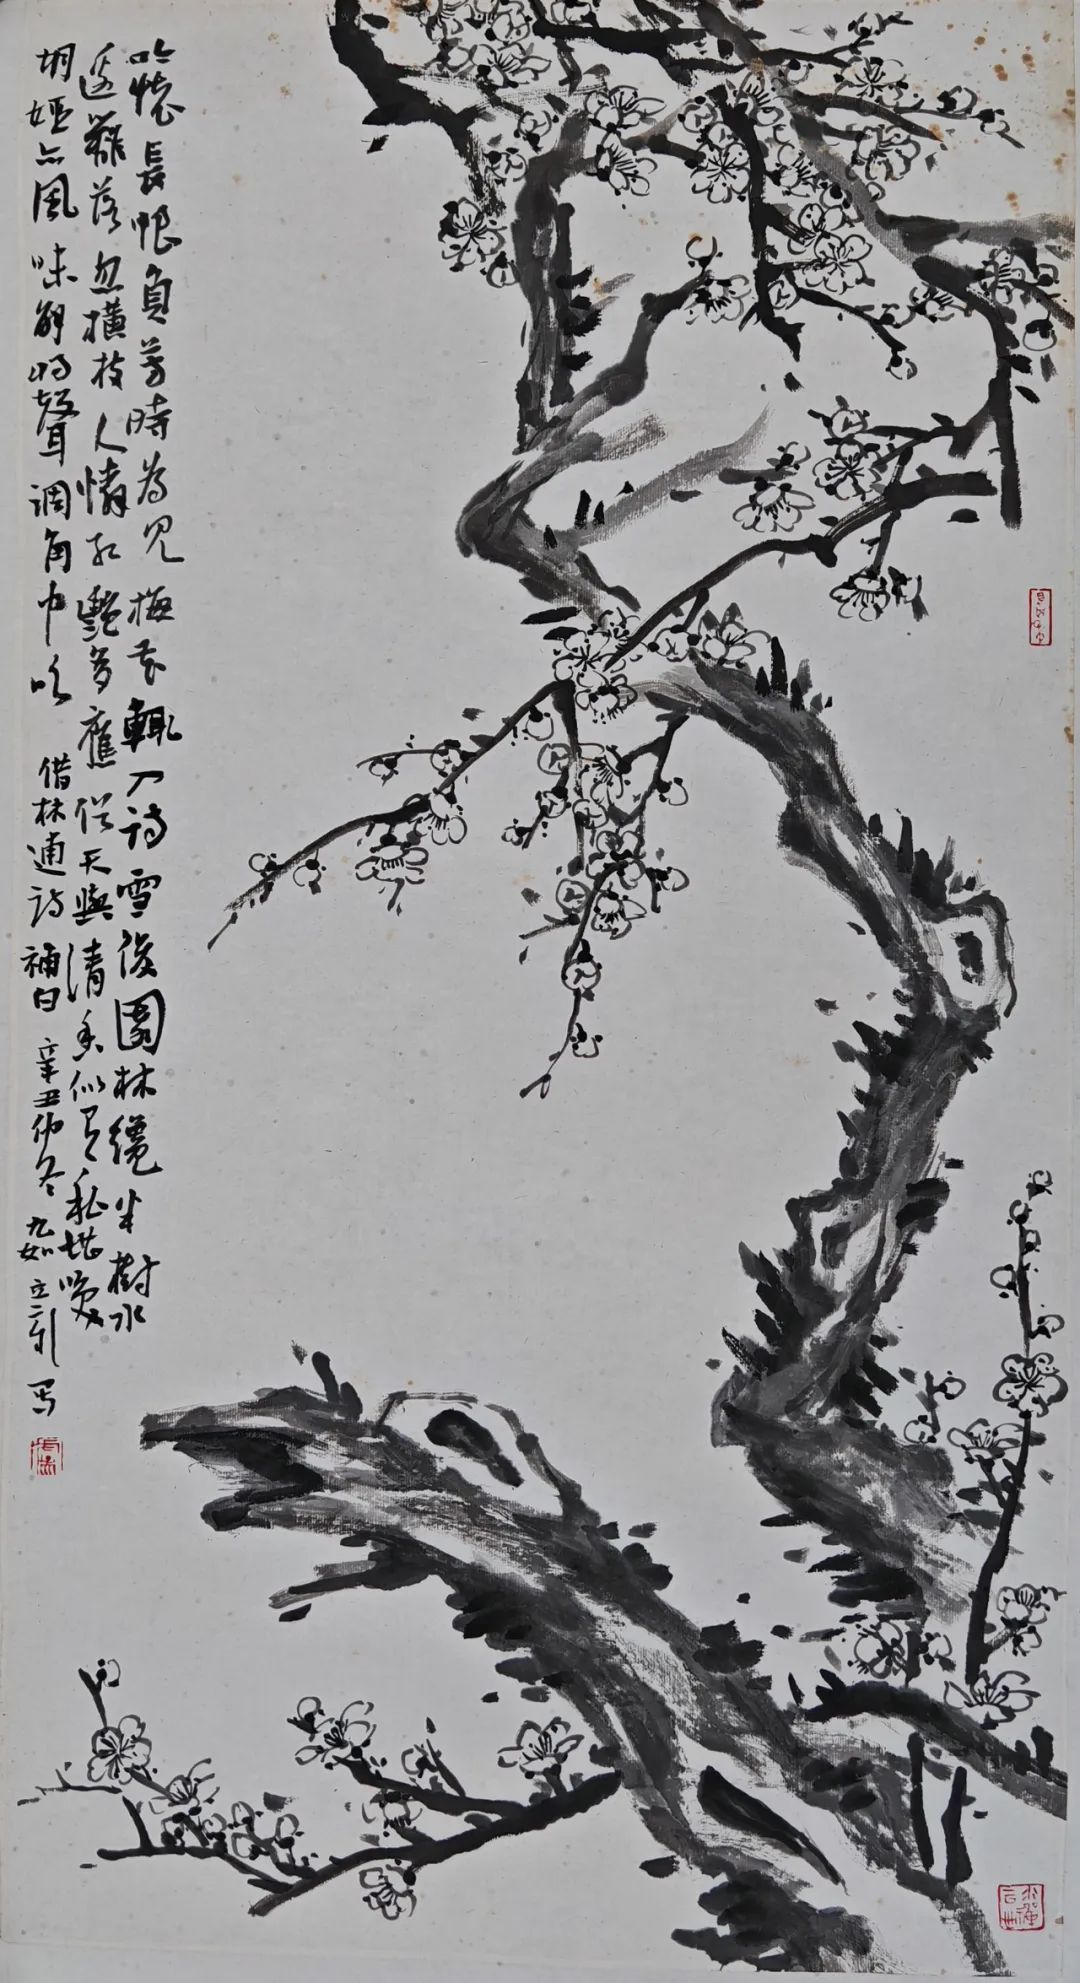 吟懷長恨負芳時為見梅花輒入诗雪後園林纔半樹水
邊籬落忽橫枝人憐紅艷多應俗天與清香似有私堪笑
胡亦風味解將聲調角中吹 借林逋诗補白 辛丑仲冬 九如立新写